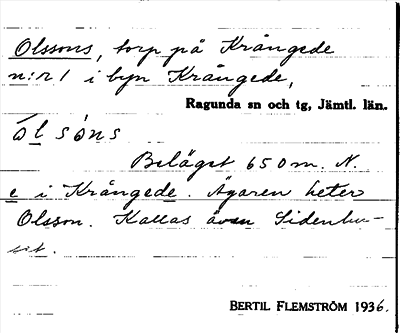 Olssons, torp på Krångede
n:r 1 i byn Krångede,
Ragunda sn och tg, Jämtl. län.
ò̀l sòns
Beläget 650 m. N.
e i Krångede. Ägaren heter
Olsson. Kallas även Sidenhu-
set.
BERTIL FLEMSTRÖM 1936.